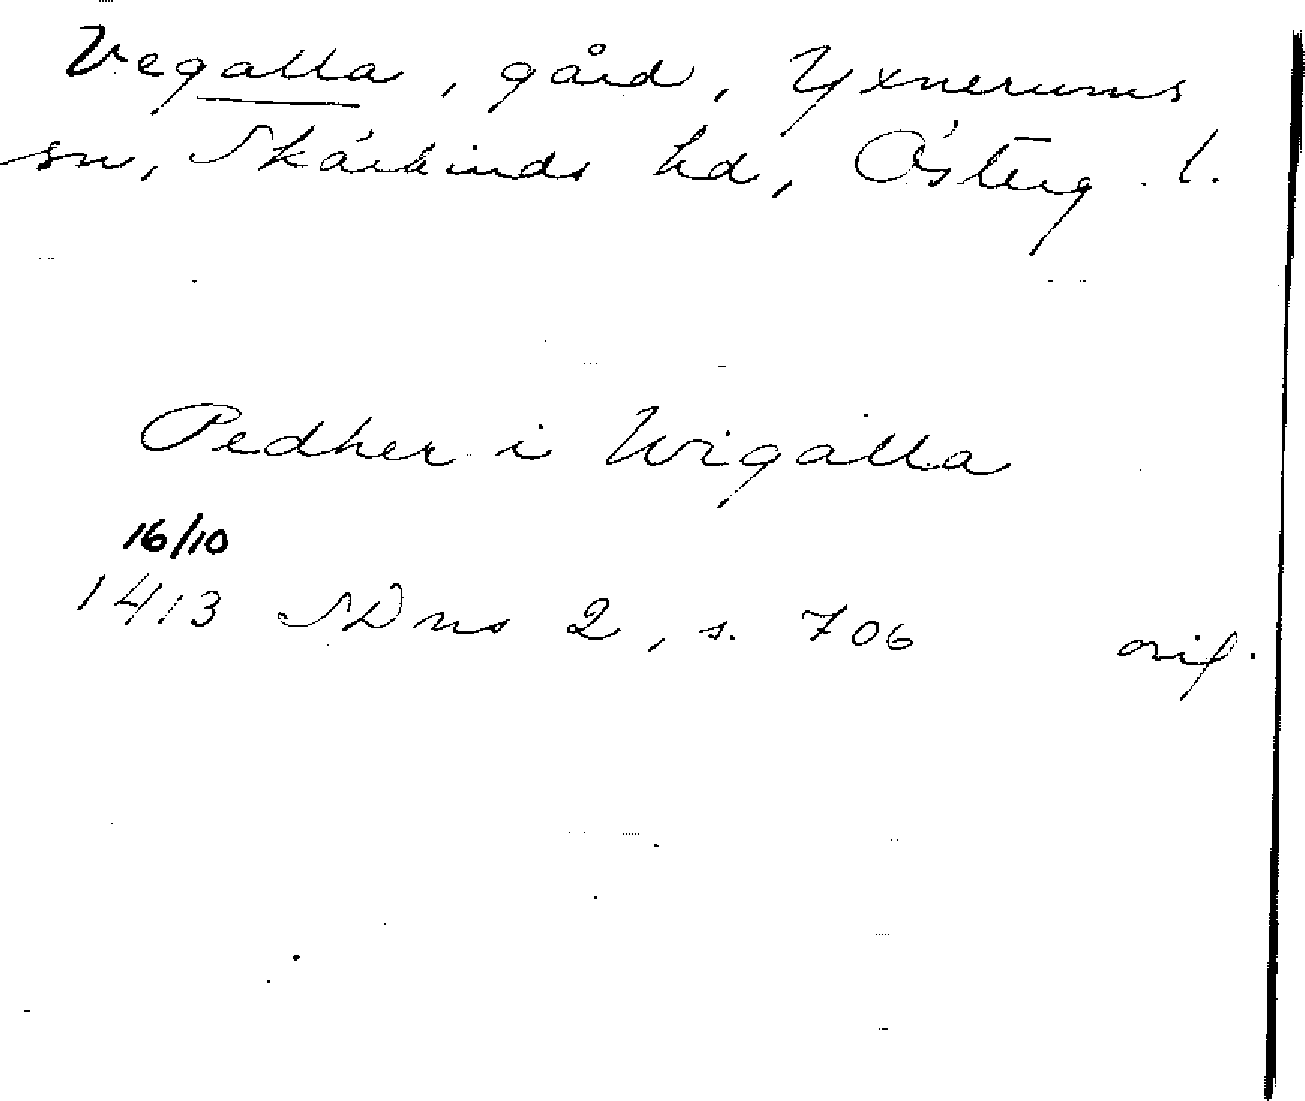 Vegalla, gård, Yxnerums
sn, Skärkinds hd, Österg. l.
Pedher i Wigalla
16/10
1413 SDns 2, s. 706 orig.